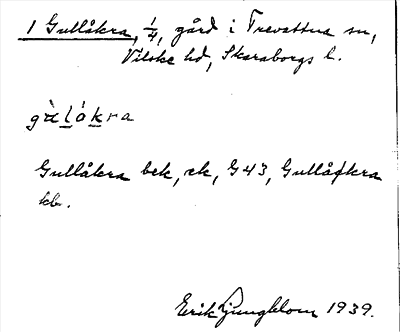 1 Gullåkra, 1/4, gård i Trevattna sn,
Vilske hd, Skaraborgs l.
gùlákra
Gullåkra bek, ek, G43, Gullåkra
kb.
Erik Ljungblom 1939.